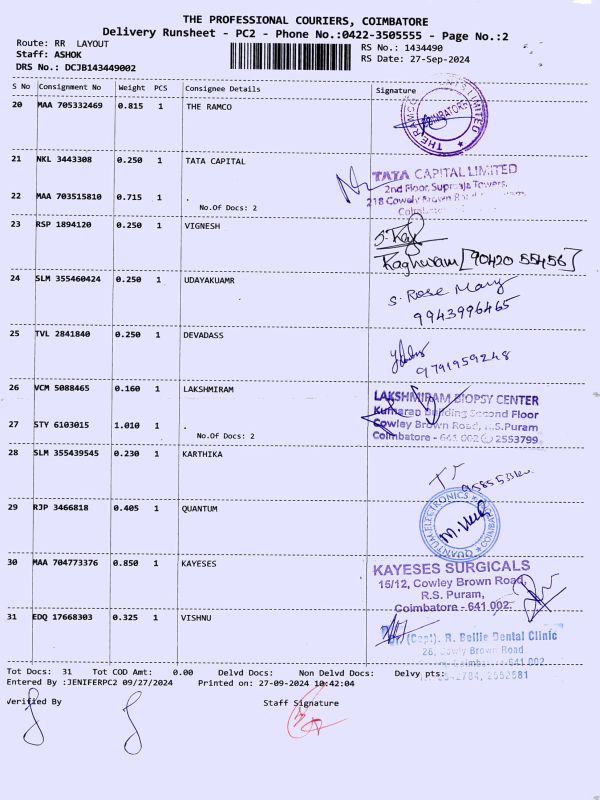 THE PROFESSIONAL COURIERS, COIMBATORE
Delivery Runsheet - PC2 - Phone No.:0422-3505555 - Page No.:2
Route: RR LAYOUT
RS No.: 1434490
Staff: ASHOK
RS Date: 27-Sep-2024
DRS No.: DCJB143449002
S No Consignment No Weight PCS Consignee Details Signature
20 MAA 705332469 0.815 1 THE RAMCO
COIMBATORE
21 NKL 3443308 0.250 1 TATA CAPITAL
TATA CAPITAL LIMITED
2nd Floor, Supriaja Towers,
22 MAA 703515810 0.715 1 .
218 Cowely Brown Road
No.Of Docs: 2
23 RSP 1894120 0.250 1 VIGNESH
Raghuram [90420 55456]
24 SLM 355460424 0.250 1 UDAYAKUAMR
S. Rose Mary
9943996465
25 TVL 2841840 0.250 1 DEVADASS
9791959248
26 VCM 5088465 0.160 1 LAKSHMIRAM
LAKSHMIRAM BIOPSY CENTER
Kumaran Building Second Floor
27 STY 6103015 1.010 1 .
Cowley Brown Road, R.S.Puram,
No.Of Docs: 2
Coimbatore - 641 002 2553799
28 SLM 355439545 0.230 1 KARTHIKA
29 RJP 3466818 0.405 1 QUANTUM
QUANTUM ELECTRONICS
30 MAA 704773376 0.850 1 KAYESES
KAYESES SURGICALS
15/12, Cowley Brown Road,
R.S. Puram,
Coimbatore - 641 002.
31 EDQ 17668303 0.325 1 VISHNU
(Capt). R. Bellie Dental Clinic
28, Cowly Brown Road
Coimbatore 641 002
2552581
Tot Docs: 31 Tot COD Amt: 0.00 Delvd Docs: Non Delvd Docs: Delvy pts:
Entered By :JENIFERPC2 09/27/2024 Printed on: 27-09-2024 10:42:04
Verified By Staff Signature